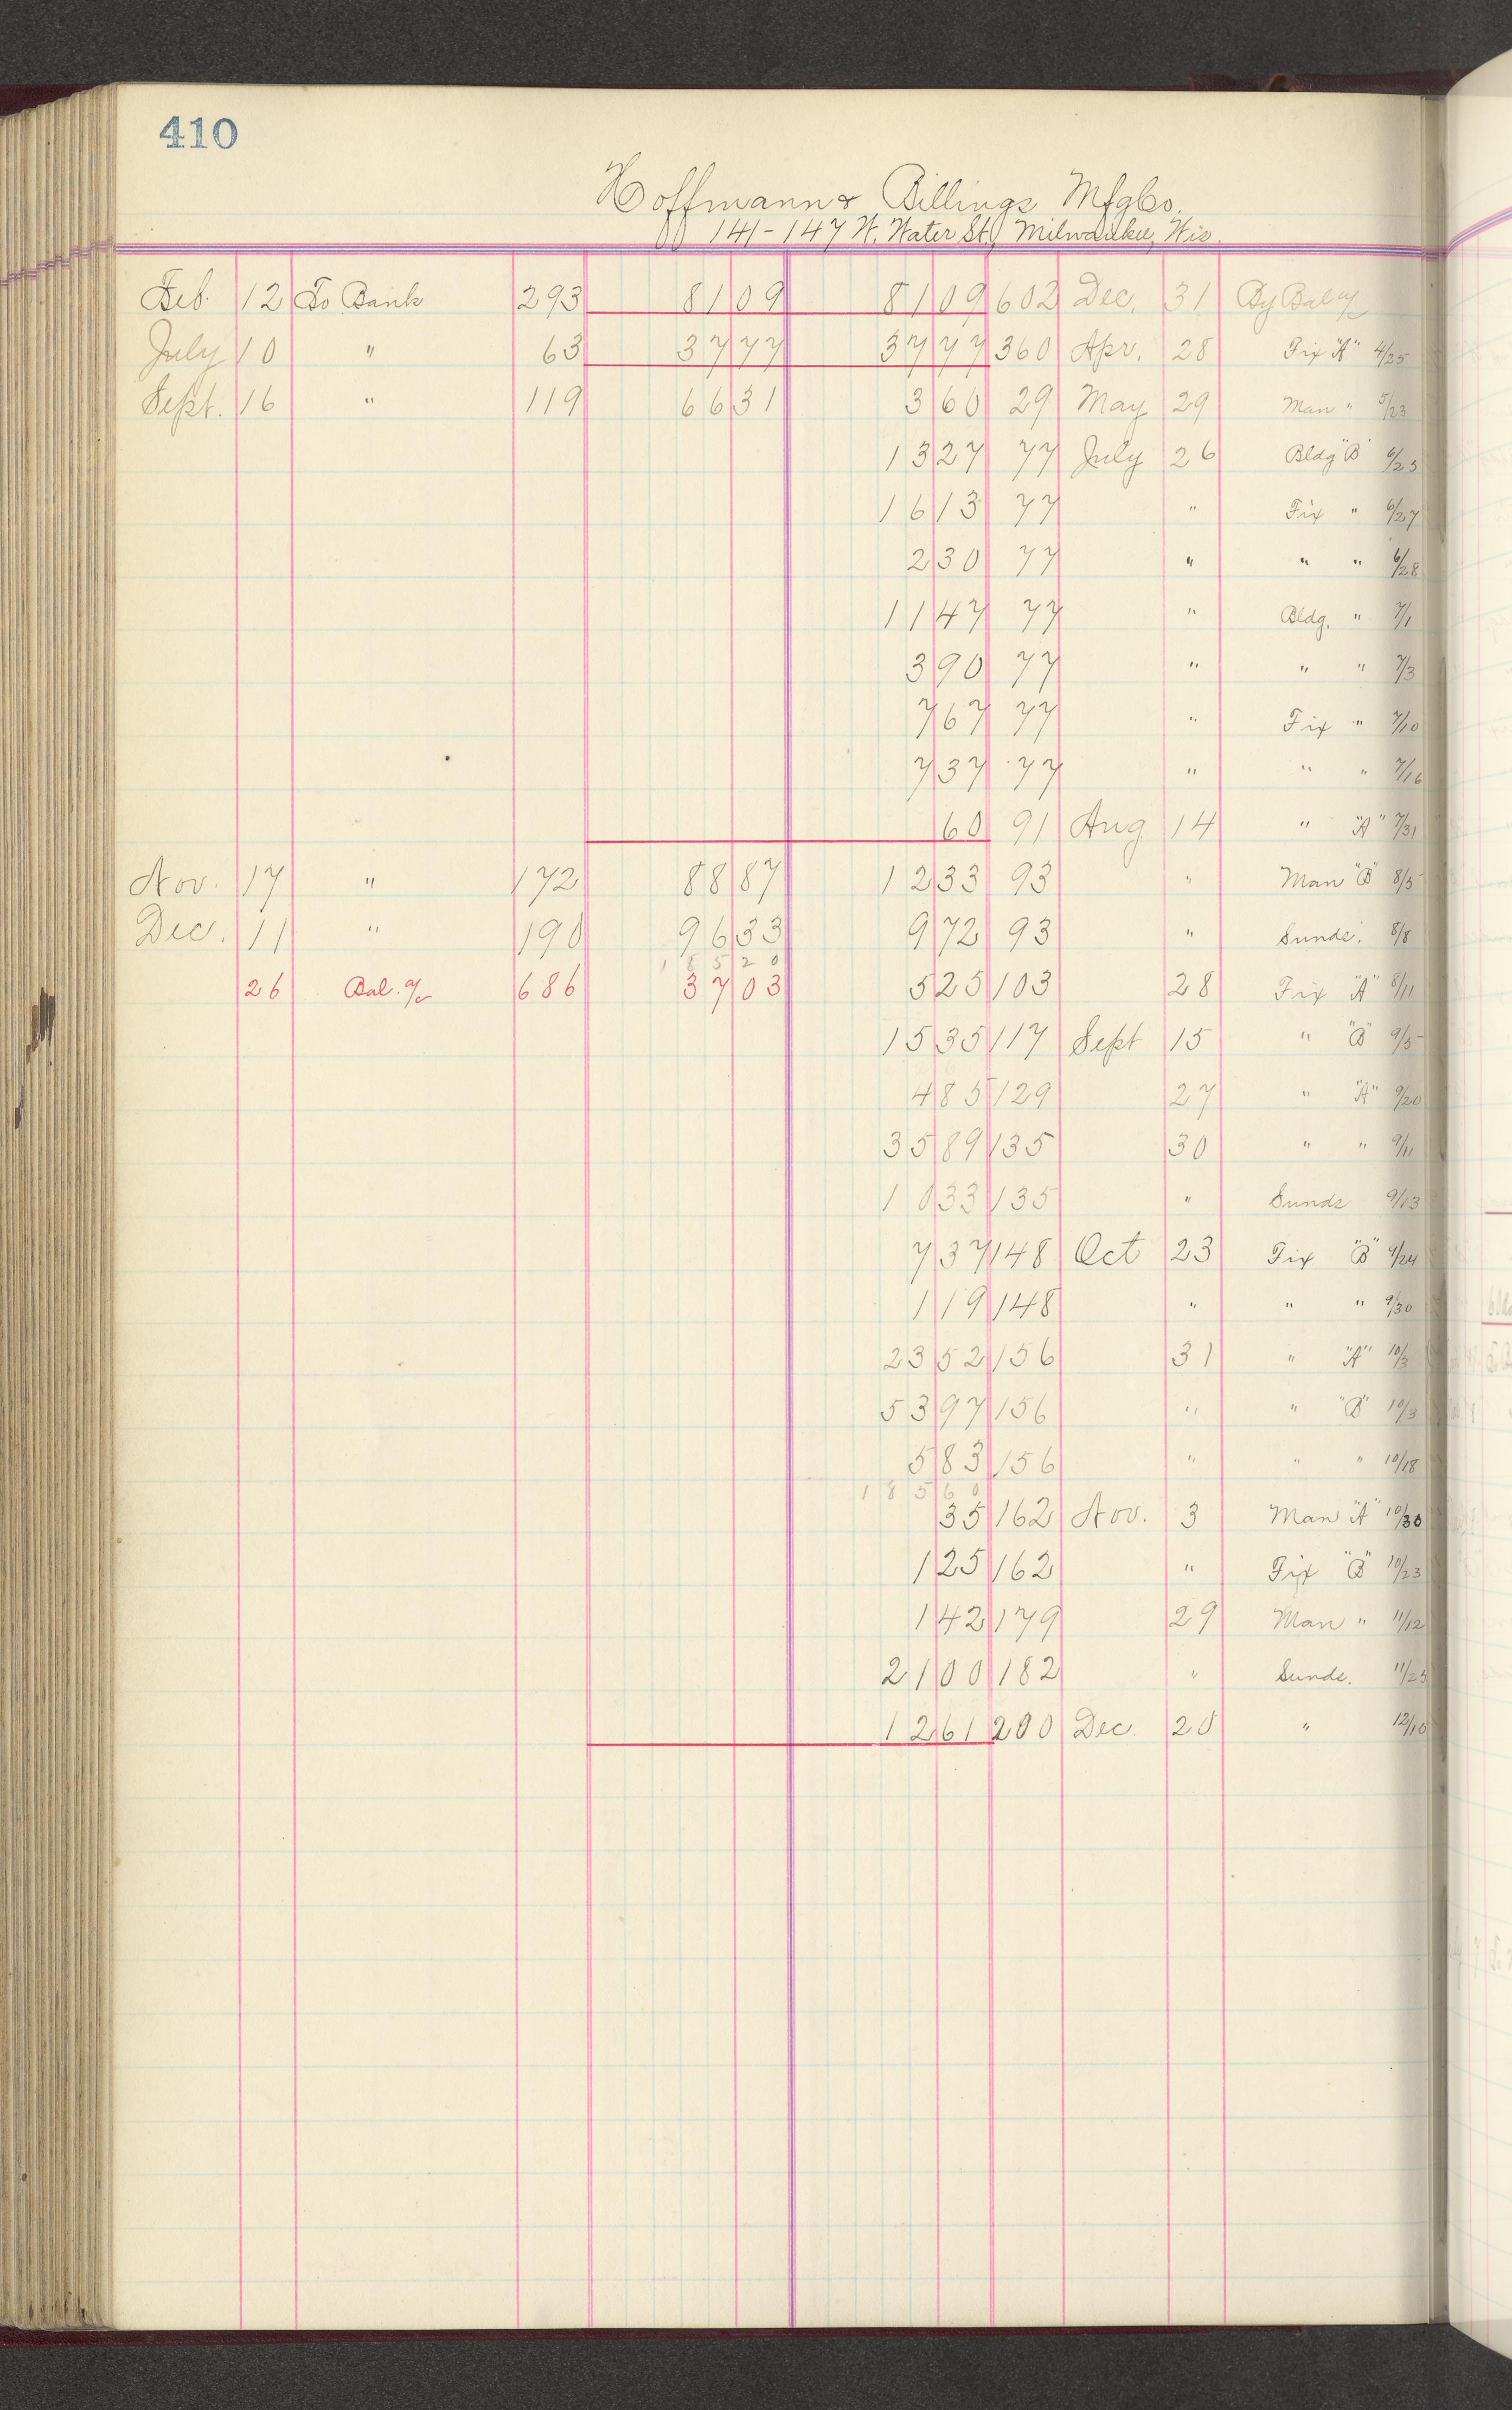 410
Hoffmann & Billings Mfg Co.
141-147 W. Water St, Milwaukee, Wis.
Feb. 12 To Bank 293 81 09 81 09 602 Dec. 31 By Bal a/c
July 10 " 63 37 77 37 77 360 Apr. 28 Fix "A" 4/25
Sept. 16 " 119 66 31 3 60 29 May 29 Man " 5/23
13 27 77 July 26 Bldg "B" 6/25
16 13 77 " Fix " 6/27
2 30 77 " " " 6/28
11 47 77 " Bldg. " 7/1
3 90 77 " " " 7/3
7 67 77 " Fix " 7/10
7 37 77 " " " 7/16
60 91 Aug 14 " "A" 7/31
Nov. 17 " 172 88 87 12 33 93 " Man "B" 8/5
Dec. 11 " 190 96 33 9 72 93 " Sunds. 8/8
1 8 5 2 0
26 Bal. a/c 686 37 03 5 25 103 28 Fix "A" 8/11
15 35 117 Sept 15 " "B" 9/5
4 85 129 27 " "A" 9/20
35 89 135 30 " " 9/11
10 33 135 " Sunds 9/13
7 37 148 Oct 23 Fix "B" 9/24
1 19 148 " " " 9/30
23 52 156 31 " "A" 10/3
53 97 156 " " "B" 10/3
5 83 156 " " " 10/18
1 8 5 6 0
35 162 Nov. 3 Man "A" 10/30
1 25 162 " Fix "B" 10/23
1 42 179 29 Man " 11/12
21 00 182 " Sunds. 11/25
12 61 200 Dec. 20 " 12/10